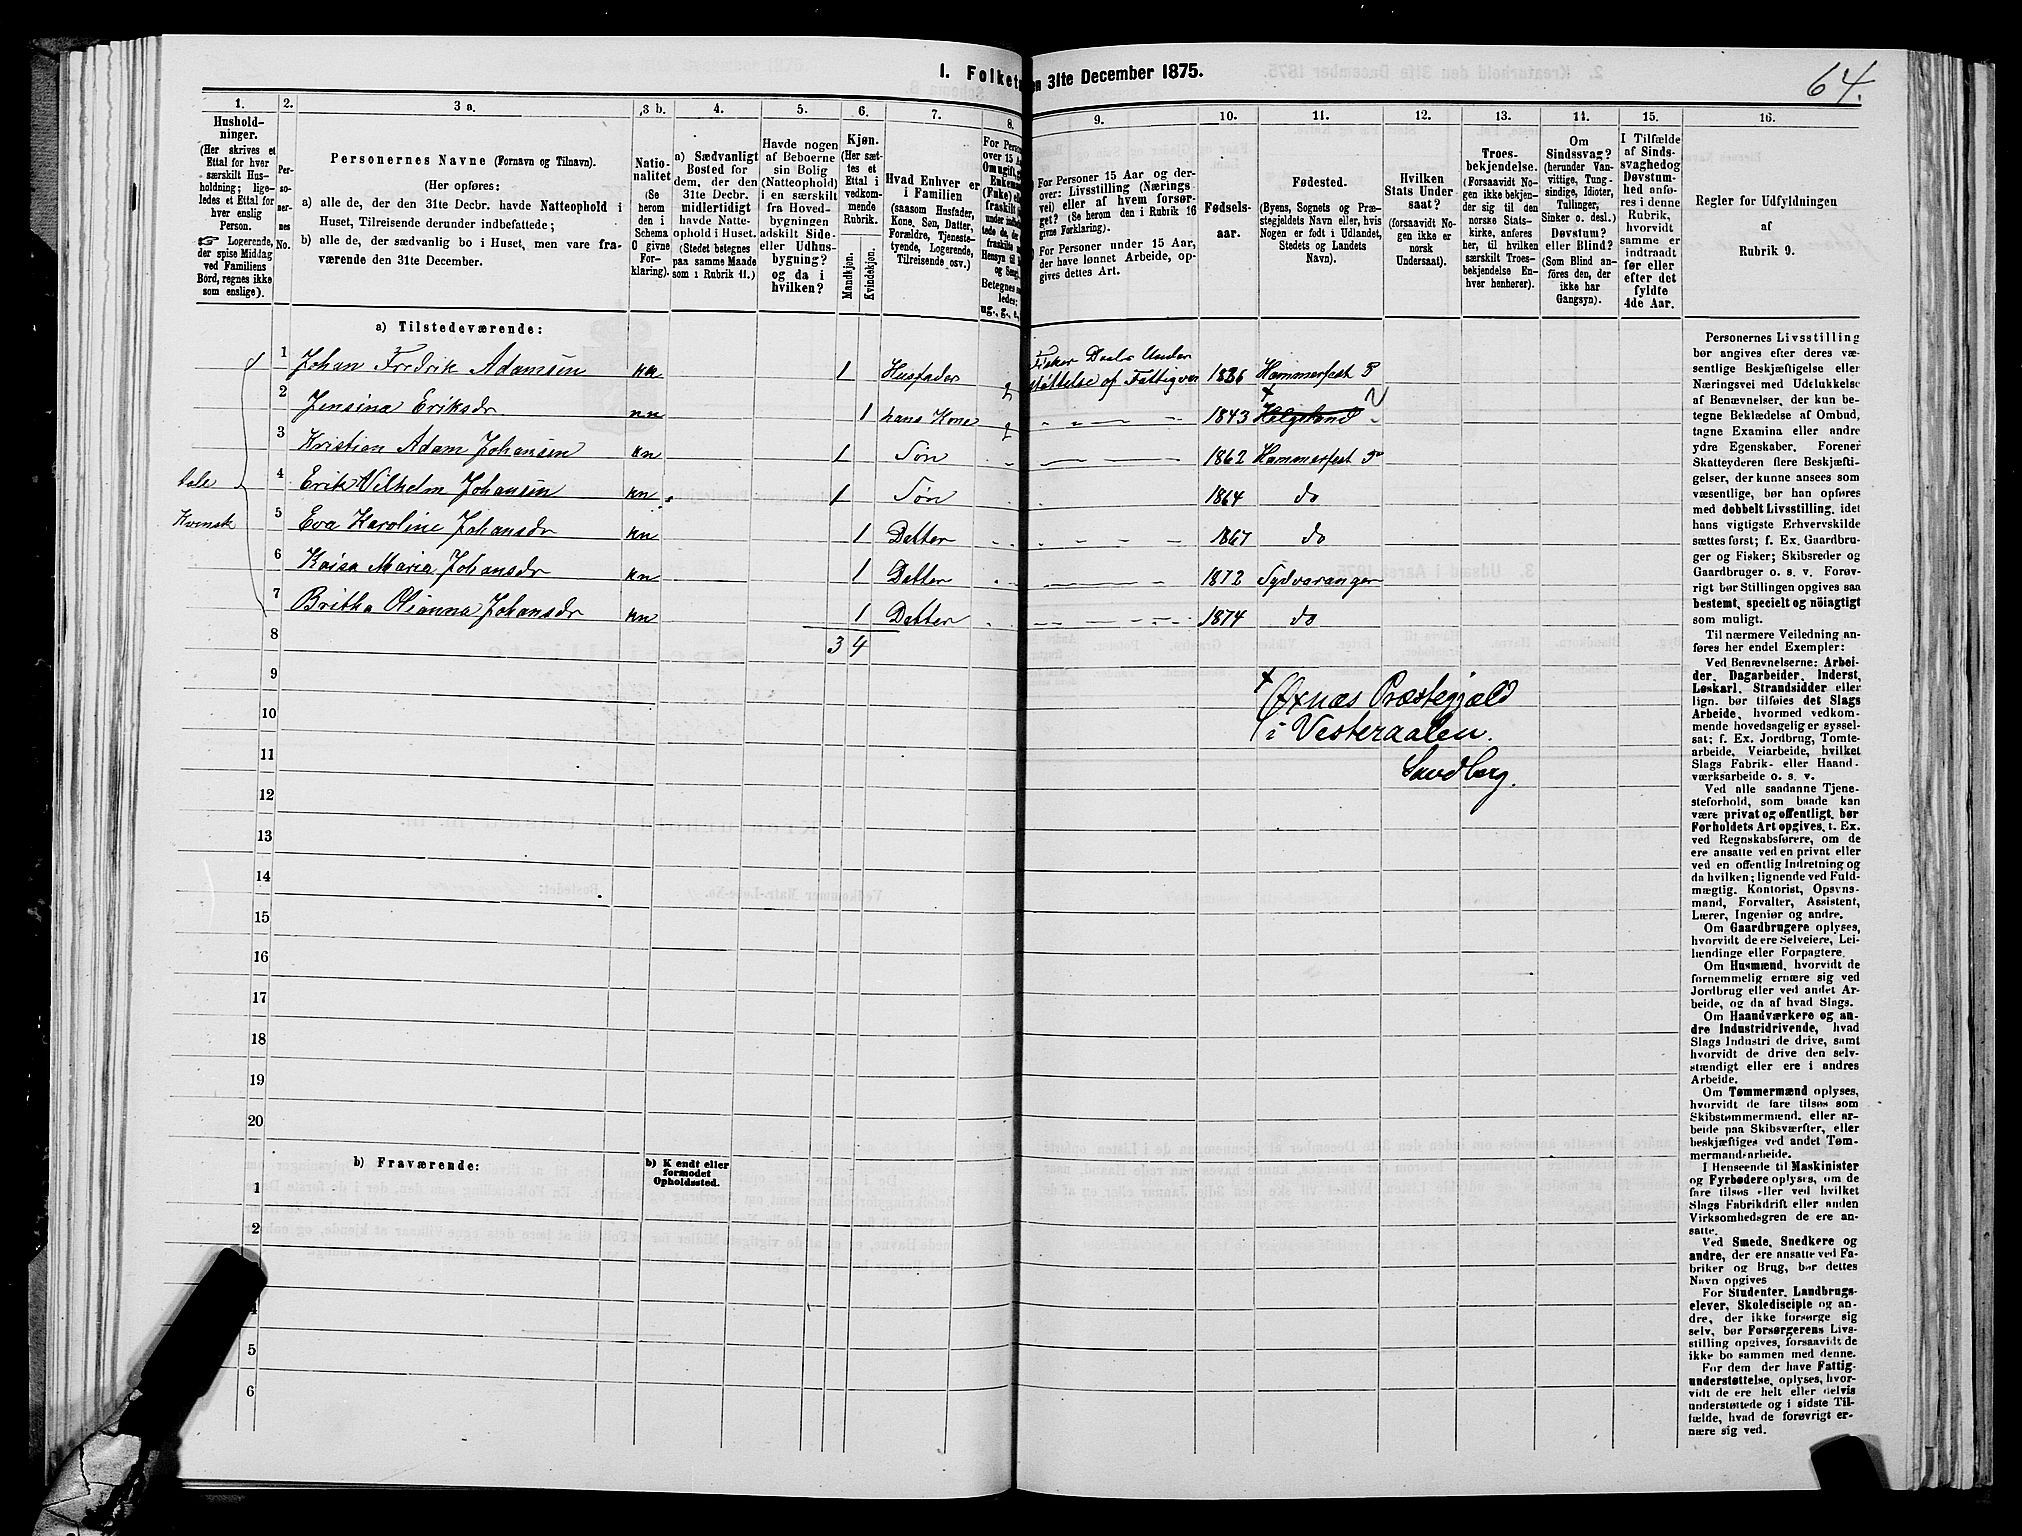 I. Folket
en 31te December 1875.
64.
1.
2.
3 a.
3 b.
4.
5.
6.
7.
8.
9.
10.
11.
12.
13.
14.
15.
16.
Hushold-
ninger.
(Her skrives et
Ettal for hver
særskilt Hus-
holdning; lige-
ledes et Ettal for
hver enslig
Person.
☞ Logerende,
der spise Middag
ved Familiens
Bord, regnes ikke
som enslige).
Per-
so-
ner-
nes
No.
Personernes Navne (Fornavn og Tilnavn).
(Her opføres:
a) alle de, der den 31te Decbr. havde Natteophold i
Huset, Tilreisende derunder indbefattede;
b) alle de, der sædvanlig bo i Huset, men vare fra-
værende den 31te December.
Natio-
nalitet
(Se
herom
den i
Schema
O givne
For-
klaring).
a) Sædvanligt
Bosted for
dem, der den
31te Decbr.
midlertidigt
havde Natte-
ophold i Huset.
(Stedet betegnes
paa samme Maade
som i Rubrik 11.)
Havde nogen
af Beboerne
sin Bolig
(Natteophold)
i en særskilt
fra Hoved-
bygningen
adskilt Side-
eller Udhus-
bygning?
og da i
hvilken?
Kjøn.
(Her sæt-
tes et
Ettal i
vedkom-
mende
Rubrik.
Mandkjøn.
Kvindekjøn.
Hvad Enhver er
i Familien
(saasom Husfader,
Kone, Søn, Datter,
Forældre, Tjeneste-
tyende, Logerende,
Tilreisende osv.)
For Perso
over 15 Aa
Omugift,
Enkem
(Enke) el
fraskilt
Betegnes
ledes:
ug., g., e.,
For Personer 15 Aar og der-
over: Livsstilling (Nærings-
vei) eller af hvem forsør-
get? (Se herom den i Rubrik 16
givne Forklaring).
For Personer under 15 Aar,
der have lønnet Arbeide, op-
gives dettes Art.
Fødsels-
aar.
Fødested.
(Byens, Sognets og Præ-
stegjeldets Navn eller, hvis
Nogen er født i Udlandet,
Stedets og Landets
Navn).
Hvilken
Stats Under
saat?
(forsaavidt No-
gen ikke er
norsk
Undersaat).
Troes-
bekjendelse.
(Forsaavidt No-
gen ikke bekjen-
der sig til den
norske Stats-
kirke, anføres
her, til hvilken
særskilt Troes-
bekjendelse En-
hver henhører).
Om
Sindssvag?
(herunder Van-
vittige, Tung-
sindige, Idioter,
Tullinger,
Sinker o. desl.)
Døvstum?
eller Blind?
(Som Blind an-
føres den, der
ikke har
Gangsyn).
I Tilfælde
af Sinds-
svaghed og
Døvstum-
hed anfø-
res i denne
Rubrik,
hvorvidt
samme er
indtraadt
før eller
efter det
fyldte
4de Aar.
Regler for Udfyldningen
af
Rubrik 9.
a) Tilstedeværende:
1 Johan Fredrik Adamsen kn 1 Husfader g Fisker Deels Under støttelse af Fattigv 1836 Hammerfest P
2 Jensina Eriksdr nn 1 hans Kone g 1843 Helgeland N
3 Kristian Adam Johansen kn 1 Søn 1862 Hammerfest
4 Erik Vilhelm Johansen kn 1 Søn 1864 do
5 Eva Karoline Johansdr kn 1 Datter 1867 do
6 Kaisa Maria Johansdr kn 1 Datter 1872 Sydvaranger
7 Britha Olianna Johansdr kn 1 Datter 1874 do
tale
Kvensk
8
3 4
9
10
11
12
13
14
15
16
17
18
19
20
+
Øxnæs Præstegjæld
i Vesteraalen.
Sandberg.
b) Fraværende:
b) Kjendt eller
formodet
Opholdssted.
1
2
4
5
6
Personernes Livsstilling
bør angives efter deres væ-
sentlige Beskjæftigelse eller
Næringsvei med Udelukkelse
af Benævnelser, der kun be-
tegne Beklædelse af Ombud,
tagne Examina eller andre
ydre Egenskaber. Forener
Skatteyderen flere Beskjæfti-
gelser, der kunne ansees som
væsentlige, bør han opføres
med dobbelt Livsstilling, idet
hans vigtigste Erhvervskilde
sættes først; f. Ex. Gaardbru-
ger og Fisker; Skibsreder og
Gaardbruger o. s. v. Forøv-
rigt bør Stillingen opgives saa
bestemt, specielt og nöiagtigt
som muligt.
Til nærmere Veiledning an-
føres her endel Exempler:
Ved Benævnelserne: Arbei-
der, Dagarbeider, Inderst,
Løskarl, Strandsidder eller
lign. bør tilføies det Slags
Arbeide, hvormed vedkom-
mende hovedsagelig er syssel-
sat; f. Ex. Jordbrug, Tomte-
arbeide, Veiarbeide, hvilket
Slags Fabrik- eller Haand-
værksarbeide o. s. v.
Ved alle saadanne Tjene-
steforhold, som baade kan
være privat og offentligt, bør
Forholdets Art opgives, t. Ex.
ved Regnskabsførere, om de
ere ansatte ved en privat eller
ved en offentlig Indretning og
da hvilken; lignende ved Fuld-
mægtig, Kontorist, Opsyns-
mand, Forvalter, Assistent,
Lærer, Ingeniør og andre.
Om Gaardbrugere oplyses,
hvorvidt de ere Selveiere, Lei-
lændinge eller Forpagtere.
Om Husmænd, hvorvidt de
fornemmelig ernære sig ved
Jordbrug eller ved andet Ar-
beide, og da af hvad Slags.
Om Haandværkere og an-
dre Industridrivende, hvad
Slags Industri de drive, samt
hvorvidt de drive den selv-
stændigt eller ere i andres
Arbeide.
Om Tømmermænd oplyses,
hvorvidt de fare tilsøs som
Skibstømmermænd, eller ar-
beide paa Skibsværfter, eller
beskjæftiges ved andet Tøm-
mermandsarbeide.
I Henseende til Maskinister
og Fyrbødere oplyses, om de
fare tilsøs eller ved hvilket
Slags Fabrikdrift eller anden
Virksomhedsgren de ere an-
satte.
Ved Smede, Snedkere og
andre, der ere ansatte ved Fa-
briker og Brug, bør dettes
Navn opgives
For Studenter, Landbrugs-
elever, Skoledisciple og an-
dre, der ikke forsørge sig
selv, bør Forsørgerens Livs-
stilling opgives, forsaavidt de
ikke bo sammen med denne.
For dem, der have Fattig-
understøttelse, oplyses, hvor-
vidt de ere helt eller delvis
understøttede og i sidste Til-
fælde, hvad de forøvrigt er-
nære sig ved.